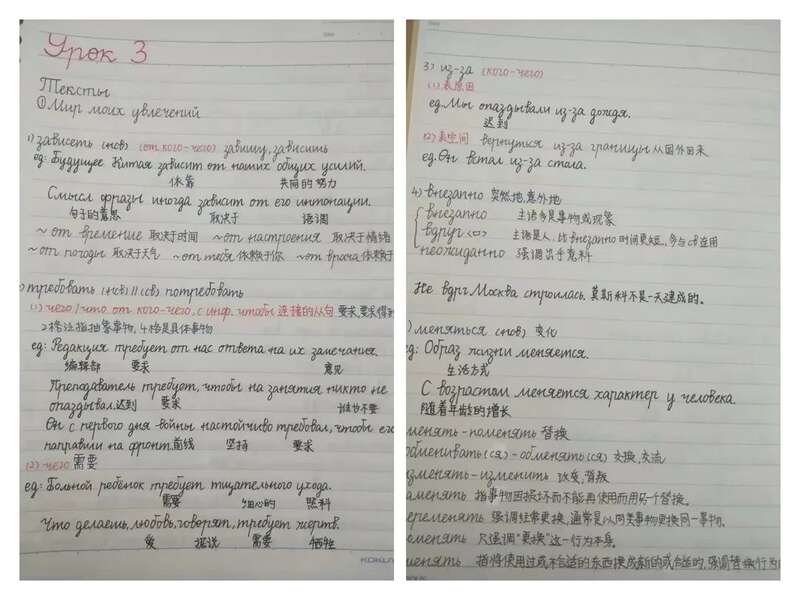 Урок 3
Тексты
① Мир моих увлечений
1) зависеть (нсв) (от кого-чего) завишу, зависишь
eg: Будущее Китая зависит от наших общих усилий.
依靠 共同的努力
Смысл фразы иногда зависит от его интонации.
句子的意思 取决于 语调
~ от времение 取决于时间 ~от настроения 取决于情绪
~ от погоды 取决于天气 ~от тебя 依赖于你 ~от врача 依赖于
) требовать (нсв) // (св) потребовать
(1) чего/что от кого-чего, с инф. чтобы 连接的从句 要求,要求得到
2格泛指抽象事物,4格是具体事物
eg: Редакция требует от нас ответа на их замечания.
编辑部 要求 意见
Преподаватель требует, чтобы на занятия никто не
опаздывал. 迟到 要求 谁也不要
Он с первого дня войны настойчиво требовал, чтобы его
направили на фронт. 前线 坚持 要求
(2) чего 需要
eg: Больной ребёнок требует тщательного ухода.
需要 细心的 照料
Что делаешь, любовь, говорят, требует жертв.
爱 据说 需要 牺牲
KOKUYO
3) из-за (кого-чего)
(1) 表原因
eg. Мы опаздывали из-за дождя.
迟到
(2) 表空间 вернуться из-за границы 从国外回来
eg. Он встал из-за стола.
4) внезапно 突然地,意外地
внезапно 主语多是事物或现象
вдруг <口> 主语是人,比 внезапно 时间更短,多与св连用
неожиданно 强调出乎意料
Не вдруг Москва строилась. 莫斯科不是一天建成的。
) меняться (нсв) 变化
eg: Образ жизни меняется.
生活方式
С возрастом меняется характер у человека.
随着年龄的增长
менять - поменять 替换
обменивать(ся) - обменять(ся) 交换,交流
изменять - изменить 改变,背叛
аменять 指事物因损坏而不能再使用而用另一个替换。
еременять 强调经常更换,通常是以同类事物更换同一事物。
оменять 只强调“更换”这一行为本身。
менять 指将使用过或不合适的东西换成新的或合适的,强调替换行为